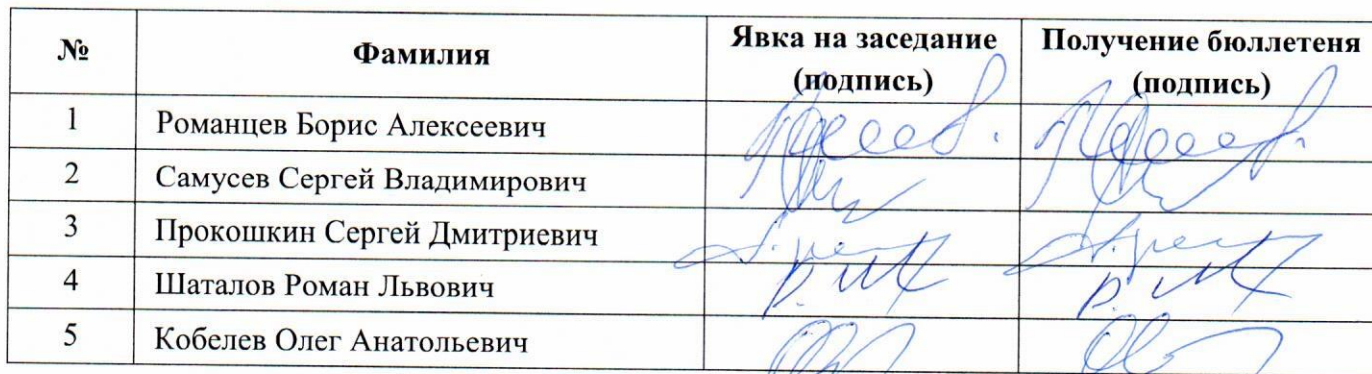 № Фамилия Явка на заседание (подпись) Получение бюллетеня (подпись)
1 Романцев Борис Алексеевич
2 Самусев Сергей Владимирович
3 Прокошкин Сергей Дмитриевич
4 Шаталов Роман Львович
5 Кобелев Олег Анатольевич